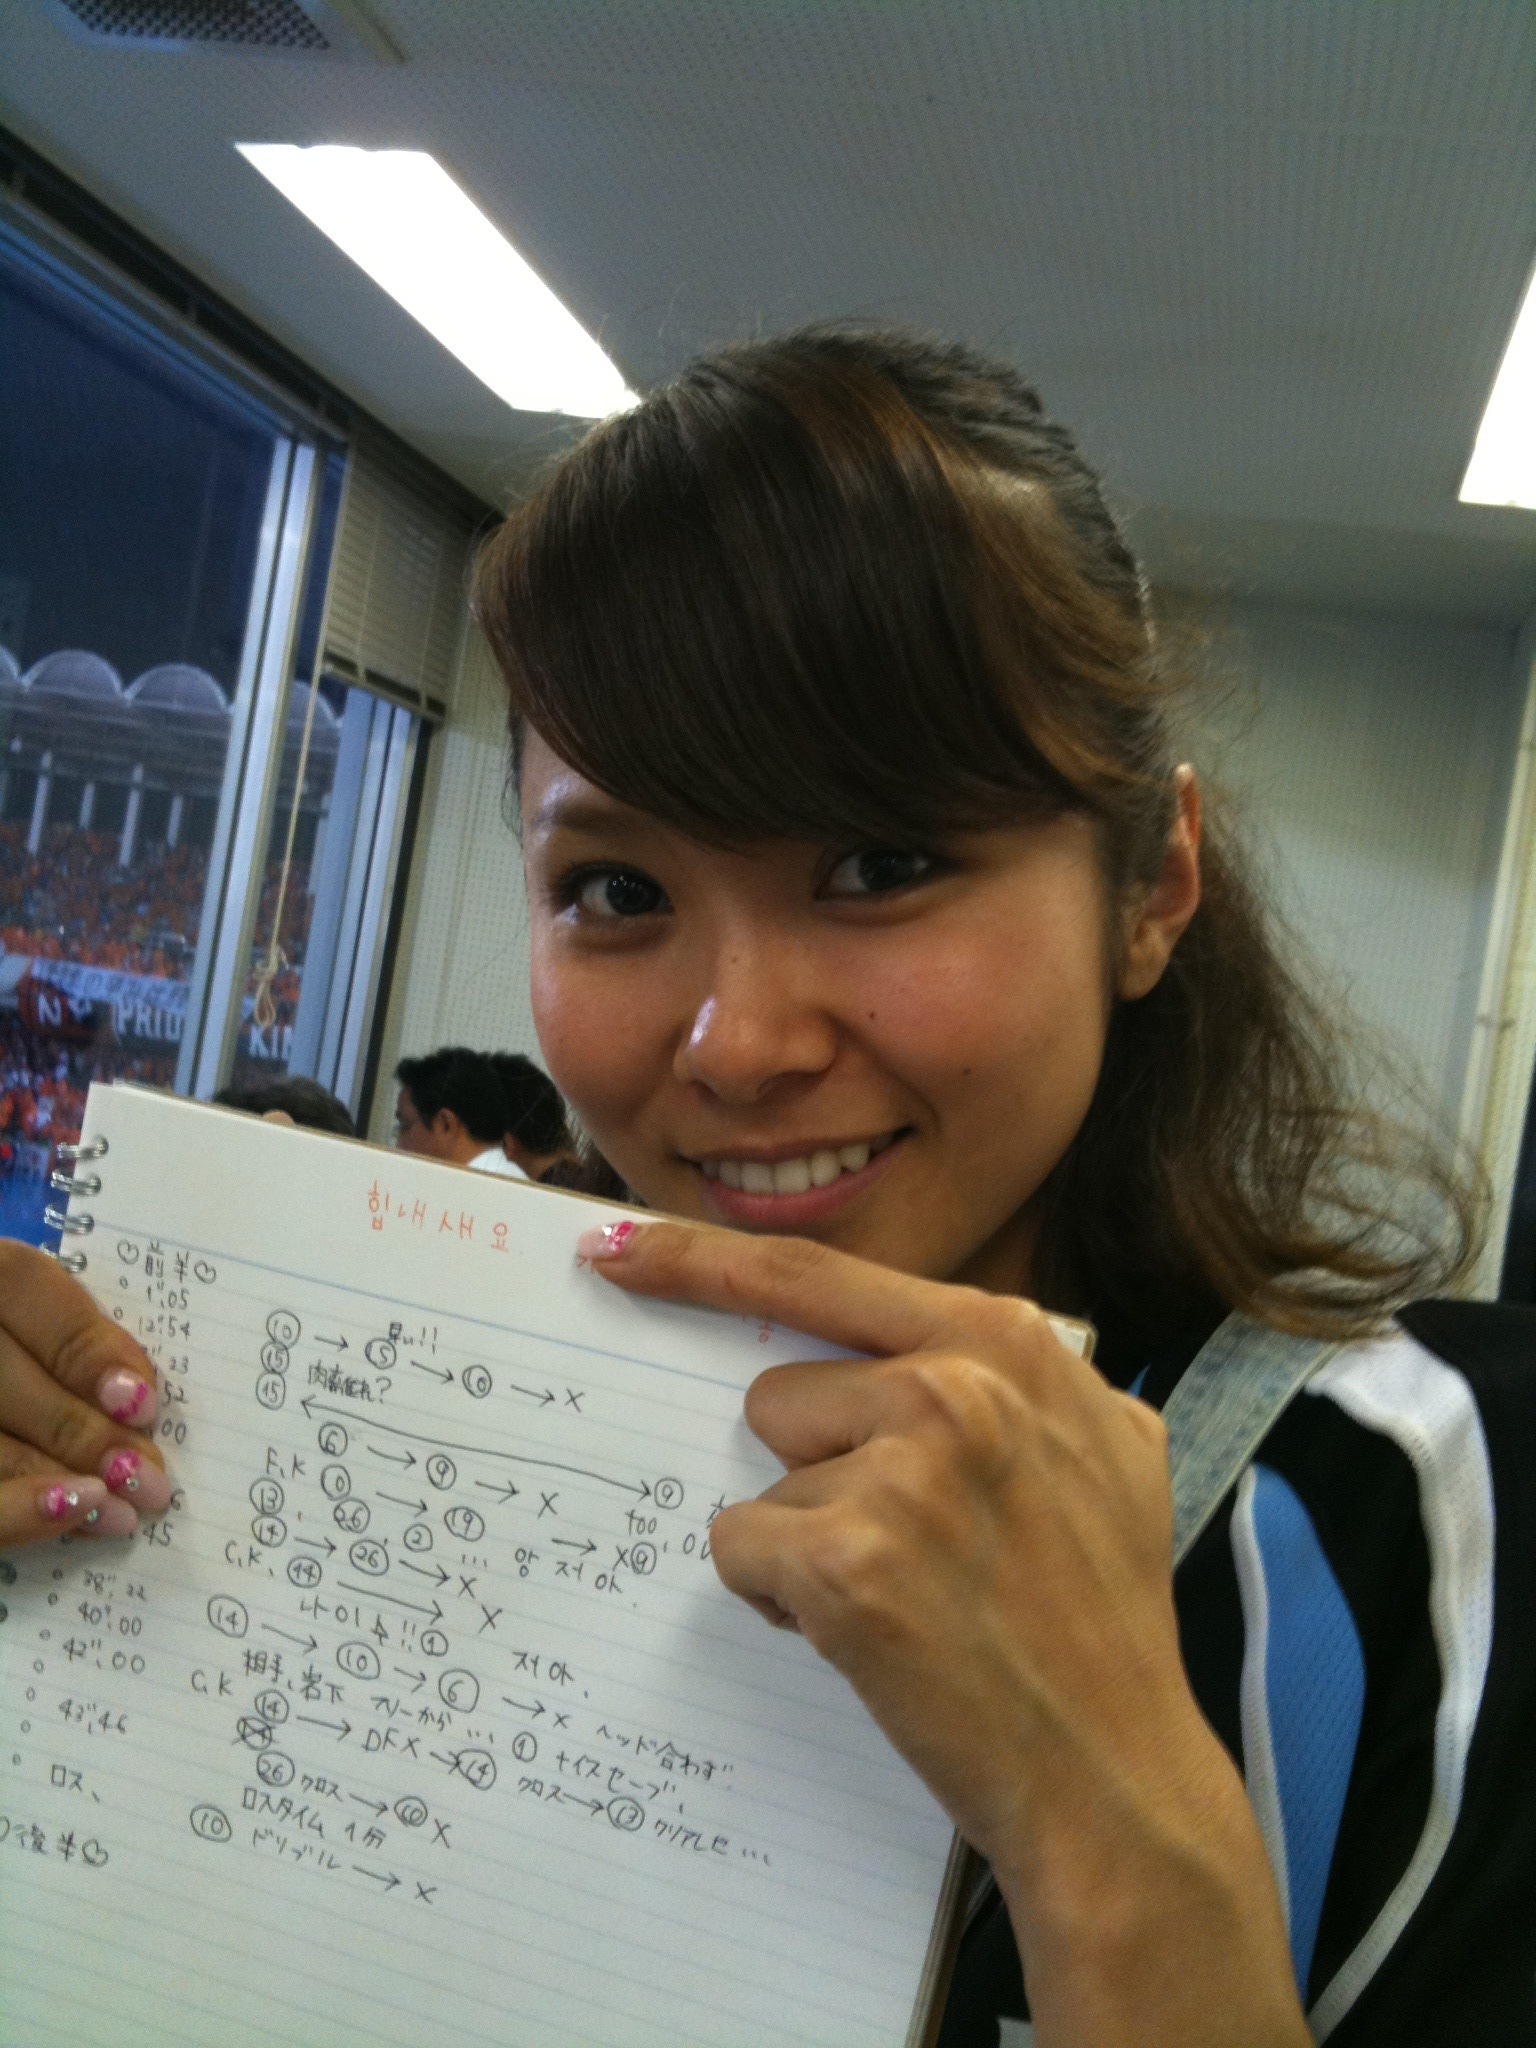 PRIDE
KIN
힘내새요
♡前半♡
1",05
12",54
23
52
00
45
38",22
40",00
42",00
43",46
ロス、
後半♡
早い!!
⑩→⑮→⑩→×
⑮
⑮
⑥→⑨→×
⑨
F,K ⑩→⑲→×⑨
⑬,㉖,②...앙 저아.
⑭→㉖→×
C,K、⑭→×
나이수!!① 저아.
⑭→⑩→⑥→× ヘッド合わず
相手、岩下 フリーから...①ナイスセーブ、
C,K ⑭→DF×→⑭ クロス→⑬クリアしせ...
㉖クロス→⑩×
ロスタイム 1分
⑩ ドリブル→×